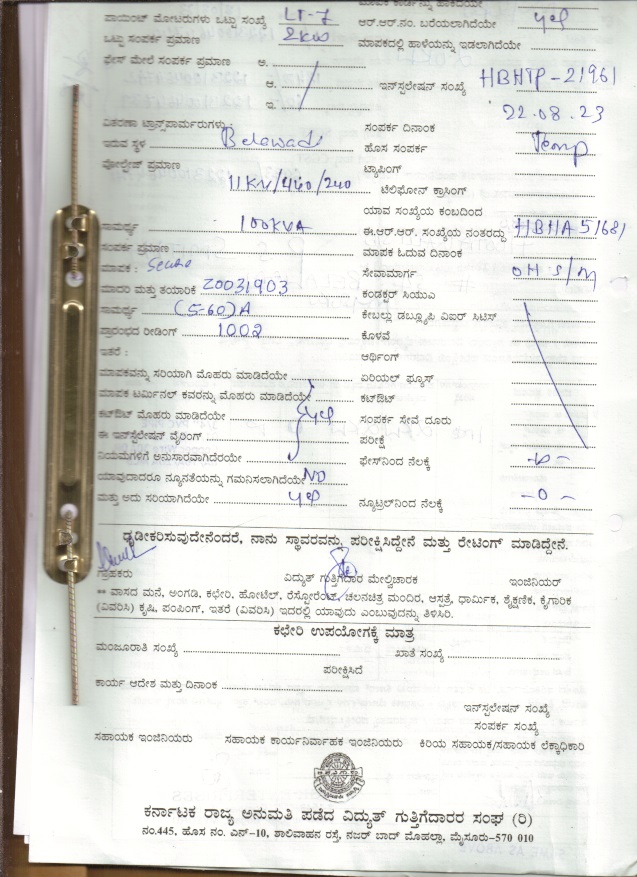 ಪಾಯಿಂಟ್ ಮೋಟರುಗಳು ಒಟ್ಟು ಸಂಖ್ಯೆ LT-7 ಆರ್.ಆರ್.ನಂ. ಬರೆಯಲಾಗಿದೆಯೇ yes
ಒಟ್ಟು ಸಂಪರ್ಕ ಪ್ರಮಾಣ 2KW ಮಾಪಕದಲ್ಲಿ ಹಾಳೆಯನ್ನು ಇಡಲಾಗಿದೆಯೇ
ಫೇಸ್ ಮೇಲೆ ಸಂಪರ್ಕ ಪ್ರಮಾಣ ಅ.
ಆ. ಇನ್‌ಸ್ಟಲೇಷನ್ ಸಂಖ್ಯೆ HBHTP-21961
ಇ. 22.08.23
ವಿತರಣಾ ಟ್ರಾನ್ಸ್‌ಪಾರ್ಮರುಗಳು: ಸಂಪರ್ಕ ದಿನಾಂಕ
ಇರುವ ಸ್ಥಳ Belawadi ಹೊಸ ಸಂಪರ್ಕ Temp
ವೋಲ್ಟೇಜ್ ಪ್ರಮಾಣ ಟ್ಯಾಪಿಂಗ್
11KV/440/240 ಟೆಲಿಫೋನ್ ಕ್ರಾಸಿಂಗ್
ಯಾವ ಸಂಖ್ಯೆಯ ಕಂಬದಿಂದ
ಸಾಮರ್ಥ್ಯ 100KVA ಈ.ಆರ್.ಆರ್. ಸಂಖ್ಯೆಯ ನಂತರದ್ದು HBHA51681
ಸಂಪರ್ಕ ಪ್ರಮಾಣ ಮಾಪಕ ಓದುವ ದಿನಾಂಕ
ಮಾಪಕ : ಸೇವಾಮಾರ್ಗ OH S/M
ಮಾದರಿ ಮತ್ತು ತಯಾರಿಕೆ 20031903 ಕಂಡಕ್ಟರ್ ಸಿಯುಎ
ಸಾಮರ್ಥ್ಯ (5-60)A ಕೇಬಲ್ಲು ಡಬ್ಲ್ಯೂಪಿ ವಿಐರ್ ಸಿಟಿಸ್
ಪ್ರಾರಂಭದ ರೀಡಿಂಗ್ 1002 ಕೊಳವೆ
ಇತರೆ : ಆರ್ಥಿಂಗ್
ಮಾಪಕವನ್ನು ಸರಿಯಾಗಿ ಮೊಹರು ಮಾಡಿದೆಯೇ ಏರಿಯಲ್ ಫ್ಯೂಸ್
ಮಾಪಕ ಟರ್ಮಿನಲ್ ಕವರನ್ನು ಮೊಹರು ಮಾಡಿದೆಯೇ ಕಟ್‌ಔಟ್
ಕಟ್‌ಔಟ್ ಮೊಹರು ಮಾಡಿದೆಯೇ yes ಸಂಪರ್ಕ ಸೇವೆ ದೂರು
ಈ ಇನ್‌ಸ್ಟಲೇಷನ್ ವೈರಿಂಗ್ ಪರೀಕ್ಷೆ
ನಿಯಮಗಳಿಗೆ ಅನುಸಾರವಾಗಿದೆರೆಯೇ ಫೇಸ್‌ನಿಂದ ನೆಲಕ್ಕೆ -0-
ಯಾವುದಾದರೂ ನ್ಯೂನತೆಯನ್ನು ಗಮನಿಸಲಾಗಿದೆಯೇ NO
ಮತ್ತು ಅದು ಸರಿಯಾಗಿದೆಯೇ yes ನ್ಯೂಟ್ರಲ್‌ನಿಂದ ನೆಲಕ್ಕೆ -0-
ಧೃಡೀಕರಿಸುವುದೇನೆಂದರೆ, ನಾನು ಸ್ಥಾವರವನ್ನು ಪರೀಕ್ಷಿಸಿದ್ದೇನೆ ಮತ್ತು ರೇಟಿಂಗ್ ಮಾಡಿದ್ದೇನೆ.
ಗ್ರಾಹಕರು ವಿದ್ಯುತ್ ಗುತ್ತಿಗೆದಾರ ಮೇಲ್ವಿಚಾರಕ ಇಂಜಿನಿಯರ್
** ವಾಸದ ಮನೆ, ಅಂಗಡಿ, ಕಛೇರಿ, ಹೋಟೆಲ್, ರೆಸ್ಟೋರೆಂಟ್, ಚಲನಚಿತ್ರ ಮಂದಿರ, ಆಸ್ಪತ್ರೆ, ಧಾರ್ಮಿಕ, ಶೈಕ್ಷಣಿಕ, ಕೈಗಾರಿಕ
(ವಿವರಿಸಿ) ಕೃಷಿ, ಪಂಪಿಂಗ್, ಇತರೆ (ವಿವರಿಸಿ) ಇದರಲ್ಲಿ ಯಾವುದು ಎಂಬುವುದನ್ನು ತಿಳಿಸಿರಿ.
ಕಛೇರಿ ಉಪಯೋಗಕ್ಕೆ ಮಾತ್ರ
ಮಂಜೂರಾತಿ ಸಂಖ್ಯೆ ಖಾತೆ ಸಂಖ್ಯೆ
ಪರೀಕ್ಷಿಸಿದೆ
ಕಾರ್ಯ ಆದೇಶ ಮತ್ತು ದಿನಾಂಕ
ಇನ್‌ಸ್ಟಲೇಷನ್ ಸಂಖ್ಯೆ
ಸಂಪರ್ಕ ಸಂಖ್ಯೆ
ಸಹಾಯಕ ಇಂಜಿನಿಯರು ಸಹಾಯಕ ಕಾರ್ಯನಿರ್ವಾಹಕ ಇಂಜಿನಿಯರು ಕಿರಿಯ ಸಹಾಯಕ/ಸಹಾಯಕ ಲೆಕ್ಕಾಧಿಕಾರಿ
ಕರ್ನಾಟಕ ರಾಜ್ಯ ಅನುಮತಿ ಪಡೆದ ವಿದ್ಯುತ್ ಗುತ್ತಿಗೆದಾರರ ಸಂಘ (ರಿ)
ನಂ.445, ಹೊಸ ನಂ. ಎನ್-10, ಶಾಲಿವಾಹನ ರಸ್ತೆ, ನಜರ್ ಬಾದ್ ಮೊಹಲ್ಲಾ, ಮೈಸೂರು-570 010